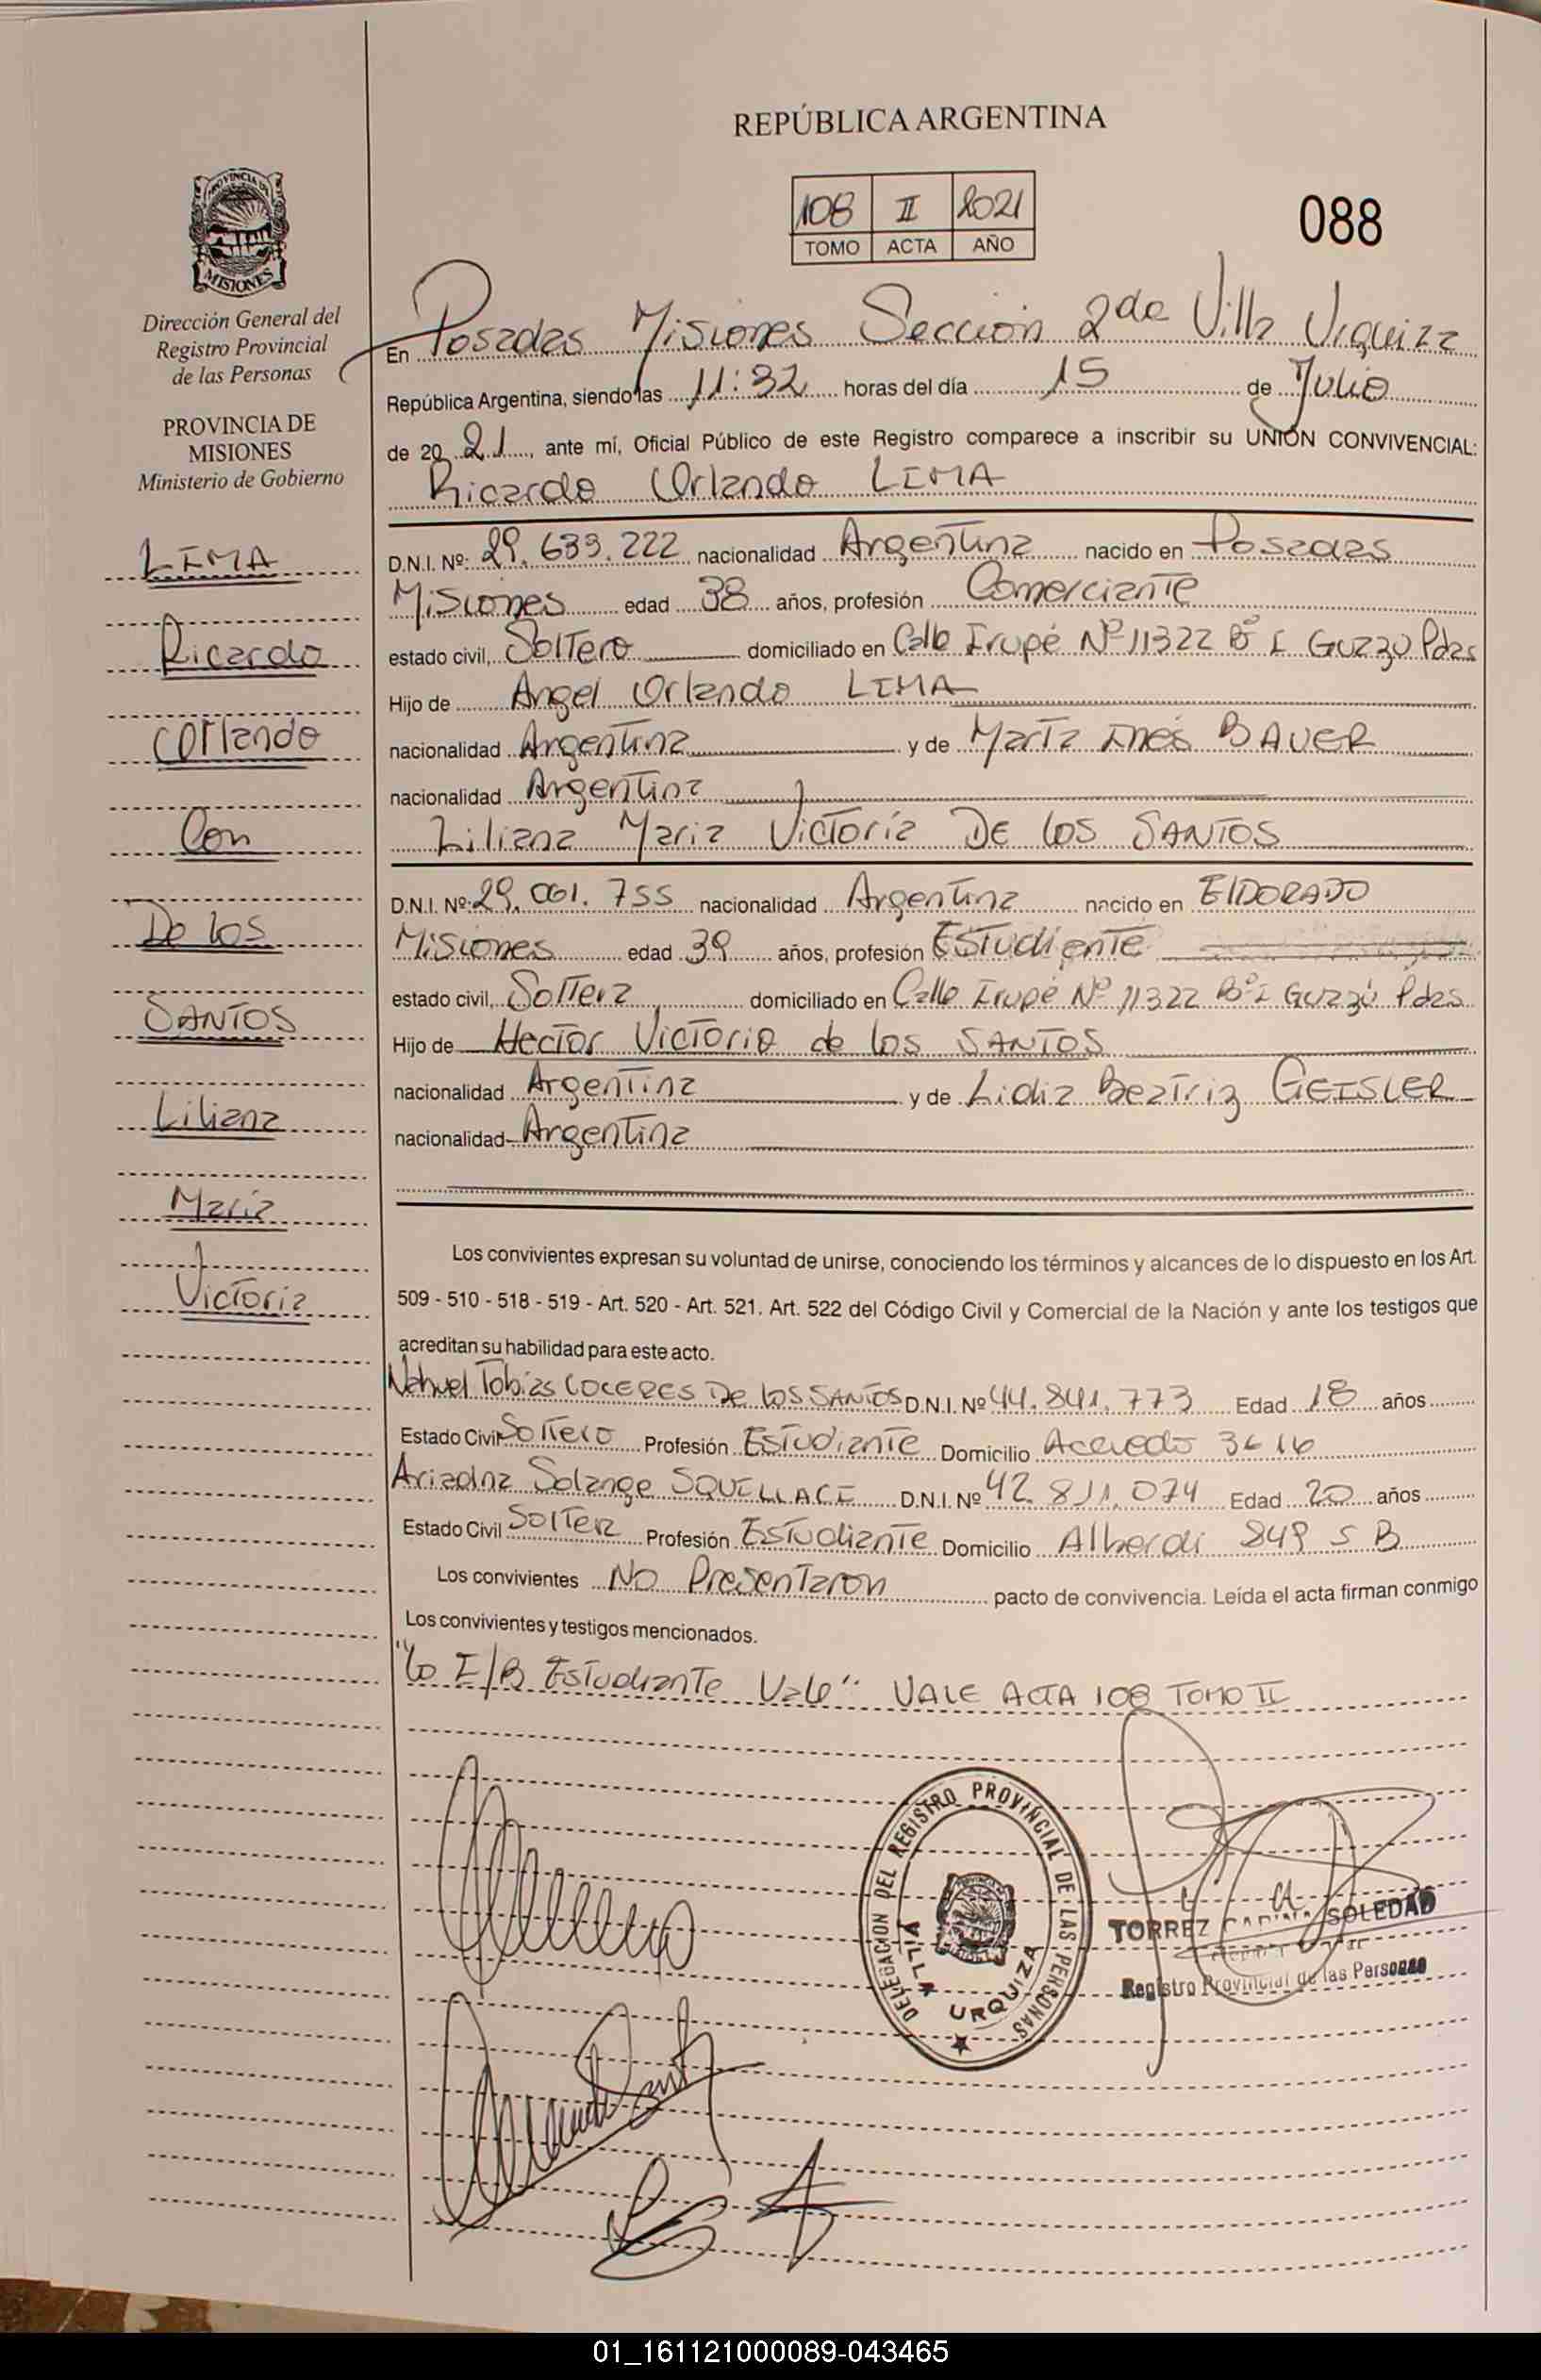 REPÚBLICA ARGENTINA
108 II 2021
TOMO ACTA AÑO
088
PROVINCIA DE
MISIONES
Dirección General del
Registro Provincial
de las Personas
PROVINCIA DE
MISIONES
Ministerio de Gobierno
LIMA
Ricardo
Orlando
Con
De los
SANTOS
Liliana
Maria
Victoria
En Posadas Misiones Sección 2da Villa Urquiza
República Argentina, siendo las 11:32 horas del día 15 de Julio
de 20 21, ante mí, Oficial Público de este Registro comparece a inscribir su UNIÓN CONVIVENCIAL:
Ricardo Orlando LIMA
D.N.I. Nº: 29.633.222 nacionalidad Argentina nacido en Posadas
Misiones edad 38 años, profesión Comerciante
estado civil, Soltero domiciliado en Calle Irupé Nº 11322 Bº I Guzzo Pdas
Hijo de Angel Orlando LIMA
nacionalidad Argentina y de Marta Inés BAUER
nacionalidad Argentina
Liliana Maria Victoria DE los SANTOS
D.N.I. Nº: 29.061.755 nacionalidad Argentina nacido en ElDORADO
Misiones edad 39 años, profesión Estudiante
estado civil, Soltera domiciliado en Calle Irupé Nº 11322 Bº I Guzzo Pdas
Hijo de Hector Victorio de los SANTOS
nacionalidad Argentina y de Lidia Beatriz GEISLER
nacionalidad Argentina
Los convivientes expresan su voluntad de unirse, conociendo los términos y alcances de lo dispuesto en los Art.
509 - 510 - 518 - 519 - Art. 520 - Art. 521. Art. 522 del Código Civil y Comercial de la Nación y ante los testigos que
acreditan su habilidad para este acto.
Nahuel Tobias COCERES De los SANTOS D.N.I. Nº 44.841.773 Edad 18 años
Estado Civil Soltero Profesión Estudiante Domicilio Acevedo 3616
Ariadna Solange SQUILLACE D.N.I. Nº 42.811.074 Edad 20 años
Estado Civil Soltera Profesión Estudiante Domicilio Alberdi 849 S B
Los convivientes No Presentaron pacto de convivencia. Leída el acta firman conmigo
Los convivientes y testigos mencionados.
"lo E/B Estudiante Vale" VALE ACTA 108 TOMO II
DELEGACION DEL REGISTRO PROVINCIAL DE LAS PERSONAS
VILLA URQUIZA
TORREZ SOLEDAD
Registro Provincial de las Personas
01_161121000089-043465